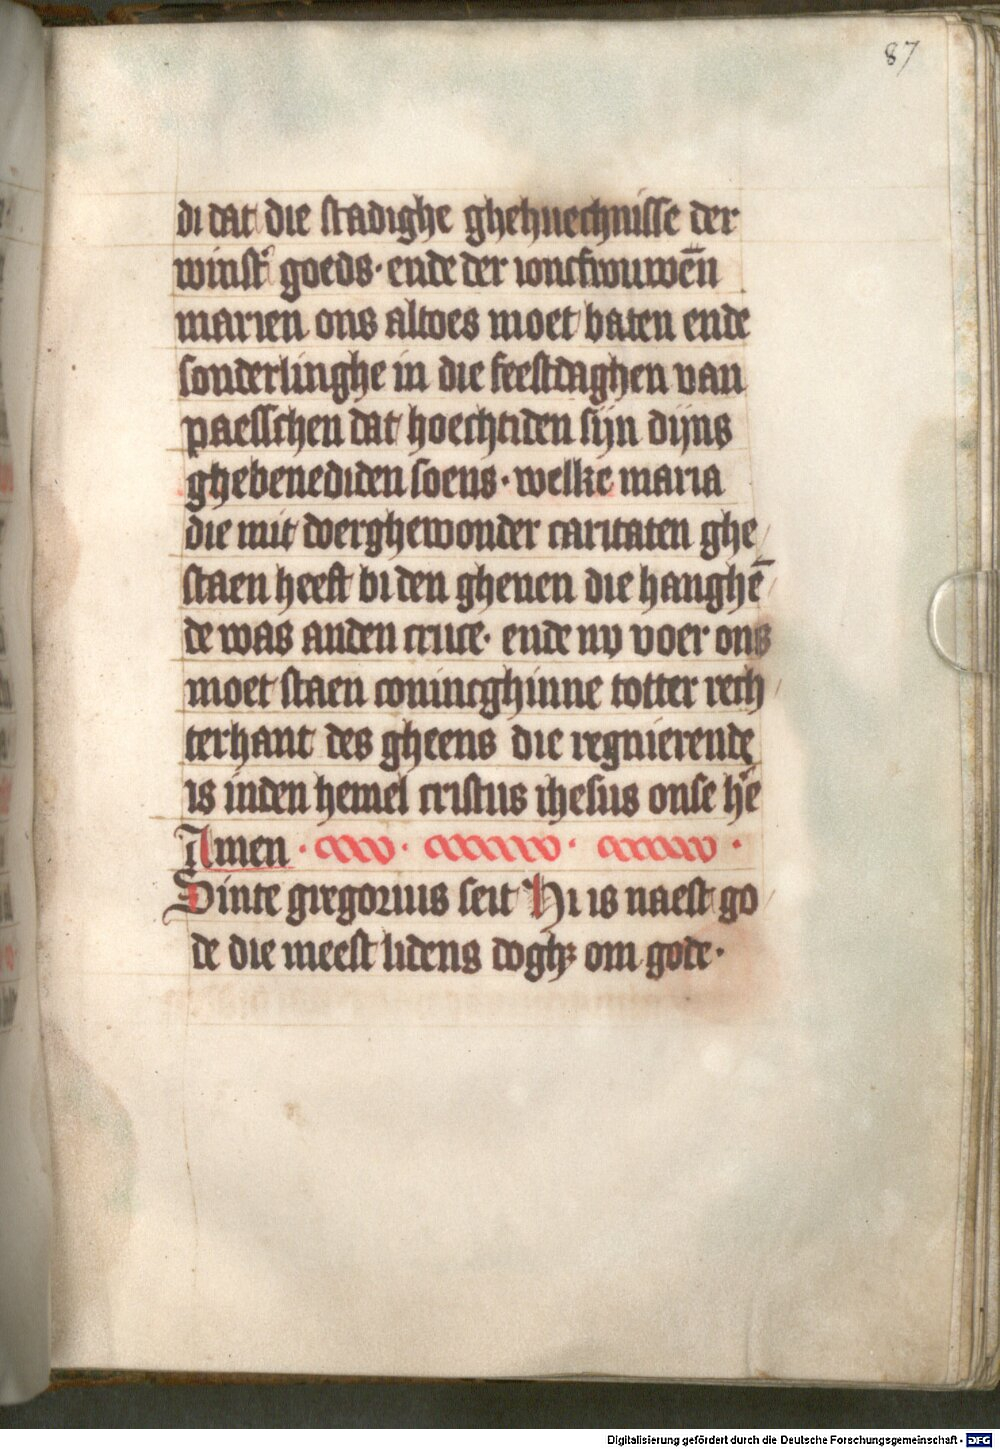 87
di dat die stadighe ghehuechnisse der
winst' goeds· ende der ioncfrouwen̄
marien ons altoes moet baten ende
sonderlinghe in die feestdaghen van
paesschen dat hoechtiden sijn dijns
ghebenediden soens· welke maria
die mit doerghewonder caritaten ghe/
staen heeft bi den ghenen die hanghē/
de was anden cruce· ende nv voer ons
moet staen conincghinne totter rech/
terhant des gheens die regnierende
is inden hemel cristus ihesus onse h'e
Amen ·
Sinte gregorius seit Hi is naest go/
de die meest lidens doghꝫ om gode·
Digitalisierung gefördert durch die Deutsche Forschungsgemeinschaft - DFG